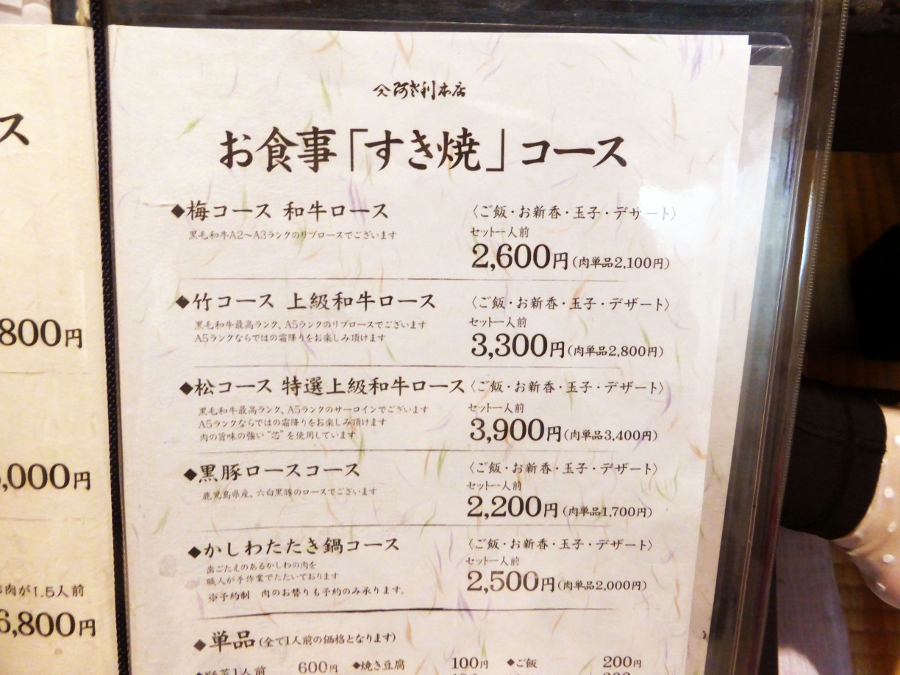 ス
800円
,000円
肉が1.5人前
6,800円
阿き利本店
お食事「すき焼」コース
◆梅コース 和牛ロース 〈ご飯・お新香・玉子・デザート〉
黒毛和牛A2〜A3ランクのリブロースでございます
セット一人前
2,600円(肉単品2,100円)
◆竹コース 上級和牛ロース 〈ご飯・お新香・玉子・デザート〉
黒毛和牛最高ランク、A5ランクのリブロースでございます
A5ランクならではの霜降りをお楽しみ頂けます
セット一人前
3,300円(肉単品2,800円)
◆松コース 特選上級和牛ロース 〈ご飯・お新香・玉子・デザート〉
黒毛和牛最高ランク、A5ランクのサーロインでございます
A5ランクならではの霜降りをお楽しみ頂けます
肉の旨味の強い“芯”を使用しています
セット一人前
3,900円(肉単品3,400円)
◆黒豚ロースコース 〈ご飯・お新香・玉子・デザート〉
鹿児島県産、六白黒豚のロースでございます
セット一人前
2,200円(肉単品1,700円)
◆かしわたたき鍋コース 〈ご飯・お新香・玉子・デザート〉
歯ごたえのあるかしわの肉を
職人が手作業でたたいております
※予約制 肉のお替りも予約のみ承ります。
セット一人前
2,500円(肉単品2,000円)
◆単品(全て1人前の価格となります)
◆野菜1人前 600円 ◆焼き豆腐 100円 ◆ご飯 200円